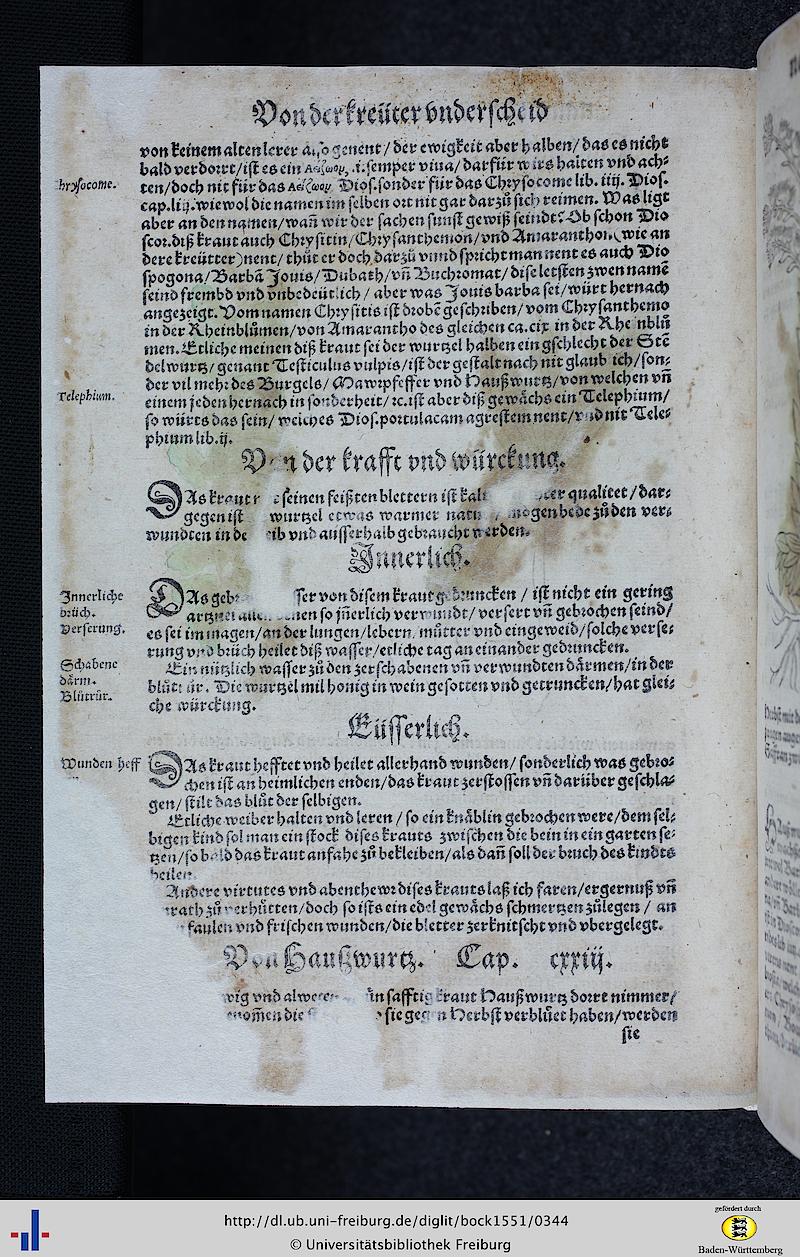 Von der kreüter vnderscheid
von keinem alten lerer also genent / der ewigkeit aber halben / das es nicht
bald verdorrt / ist es ein Ἀείζωον, .i. semper viua / darfür wirs halten vnd ach⸗
hrysocome.
ten / doch nit für das Ἀείζωον Dios. sonder für das Chrysocome lib. iiij. Dios.
cap. liij. wiewol die namen im selben ort nit gar darzů sich reimen. Was ligt
aber an den namen / wañ wir der sachen sunst gewiß seindt? Ob schon Dio
scor. diß kraut auch Chrysitin / Chrysanthemon / vnd Amaranthon (wie an
dere kreütter) nent / thůt er doch darzů vnnd spricht man nent es auch Dio
spogona / Barbã Jouis / Dubath / vñ Buchromat / dise letsten zwen namẽ
seind frembd vnd vnbedeütlich / aber was Jouis barba sei / würt hernach
angezeigt. Vom namen Chrysitis ist drobẽ geschriben / vom Chrysanthemo
in der Rheinblůmen / von Amarantho des gleichen ca. cix in der Rheinblů
men. Etliche meinen diß kraut sei der wurtzel halben ein gschlecht der Stẽ
delwurtz / genant Testiculus vulpis / ist der gestalt nach nit glaublich / son⸗
der vil mehr des Burgels / Mawrpfeffer vnd Haußwurtz / von welchen vñ
Telephium.
einem jeden hernach in sonderheit / ꝛc. ist aber diß gewächs ein Telephium /
so würts das sein / welches Dios. portulacam agrestem nent / vnd nit Tele⸗
phium lib. ij.
Von der krafft vnd würckung.
DAs kraut seinen feißten blettern ist kal qualitet / dar⸗
gegen ist wurtzel etwas warmer natu mögen bede zů den ver⸗
wundten in de eib vnd ausserhalb gebraucht werden.
Innerlich.
Innerliche
brüch.
Verserung.
DAs gebr ser von disem kraut gedruncken / ist nicht ein gering
artznei allen denen so jñerlich verwundt / versert vñ gebrochen seind /
es sei im magen / an der lungen / lebern můtter vnd eingeweid / solche verse⸗
rung vnd brüch heilet diß wasser / etliche tag an einander gedruncken.
Schabene
därm.
Blůtrůr.
Ein nützlich wasser zů den zerschabenen vñ verwundten därmen / in der
blůtrůr. Die wurtzel mit honig in wein gesotten vnd getruncken / hat glei⸗
che würckung.
Eüsserlich.
Wunden heff
DAs kraut hefftet vnd heilet allerhand wunden / sonderlich was gebro⸗
chen ist an heimlichen enden / das kraut zerstossen vñ darüber geschla⸗
gen / stilt das blůt der selbigen.
Etliche weiber halten vnd leren / so ein knäblin gebrochen were / dem sel⸗
bigen kind sol man ein stock dises krauts zwischen die bein in ein garten se⸗
tzen / so bald das kraut anfahe zů bekleiben / als dañ soll der bruch des kindts
heilen.
Andere virtutes vnd abenthewr dises krauts laß ich faren / ergernuß vñ
rath zů verhütten / doch so ists ein edel gewächs schmertzen zůlegen / an
faulen vnd frischen wunden / die bletter zerknitscht vnd vbergelegt.
Von Haußwurtz. Cap. cxxiij.
wig vnd alwegen grün safftig kraut Haußwurtz dorrt nimmer /
enom̃en die sie gegen Herbst verblüet haben / werden
sie
http://dl.ub.uni-freiburg.de/diglit/bock1551/0344
© Universitätsbibliothek Freiburg
gefördert durch
Baden-Württemberg